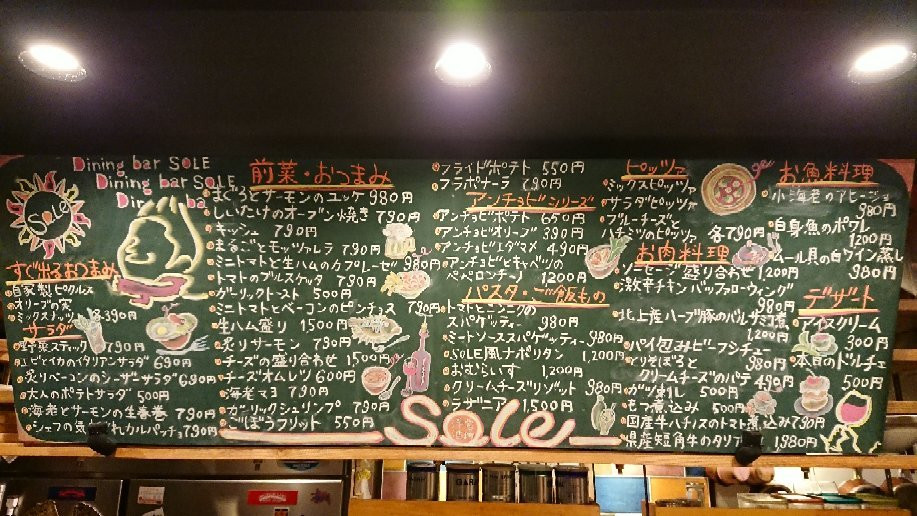 Dining bar SOLE
Dining bar SOLE
Dining ba
SOLE
すぐ出るおつまみ
自家製ピクルス
オリーブの実
ミックスナッツ 各390円
サラダ
野菜スティック 790円
エビとイカのイタリアンサラダ 690円
炙りベーコンのシーザーサラダ 690円
大人のポテトサラダ 500円
海老とサーモンの生春巻 790円
シェフの気まぐれカルパッチョ 790円
前菜・おつまみ
まぐろとサーモンのユッケ 980円
しいたけのオーブン焼き 790円
キッシュ 790円
まるごとモッツァレラ 790円
ミニトマトと生ハムのカプレーゼ 980円
トマトのブルスケッタ 790円
ガーリックトースト 500円
ミニトマトとベーコンのピンチョス 790円
生ハム盛り 1500円
炙りサーモン 790円
チーズの盛り合わせ 1500円
チーズオムレツ 600円
海老マヨ 790円
ガーリックシュリンプ 790円
ごぼうフリット 550円
フライドポテト 550円
フラポナーラ 790円
アンチョビシリーズ
アンチョビポテト 650円
アンチョビオリーブ 390円
アンチョビエダマメ 490円
アンチョビとキャベツの
ペペロンチーノ 1200円
パスタ・ご飯もの
トマトとニンニクの
スパゲッティー 980円
ミートソーススパゲッティー 980円
SOLE風ナポリタン 1,200円
おむらいす 1,200円
クリームチーズリゾット 980円
ラザニア 1,500円
Sole
ピッツァ
ミックスピッツァ
サラダピッツァ
ブルーチーズと
ハチミツのピッツァ 各790円
お肉料理
ソーセージ盛り合わせ 1200円
激辛チキンバッファローウィング
980円
北上産ハーブ豚のバルサミコ煮
1200円
パイ包みビーフシチュー
980円
とりそぼろと
クリームチーズのパテ 490円
ガツ刺し 500円
モツ煮込み 500円
国産牛ハチノスのトマト煮込み 790円
県産短角牛のタリアータ 1980円
お魚料理
小海老のアヒージョ
980円
白身魚のポワレ
1200円
ムール貝の白ワイン蒸し
980円
デザート
アイスクリーム
300円
本日のドルチェ
500円